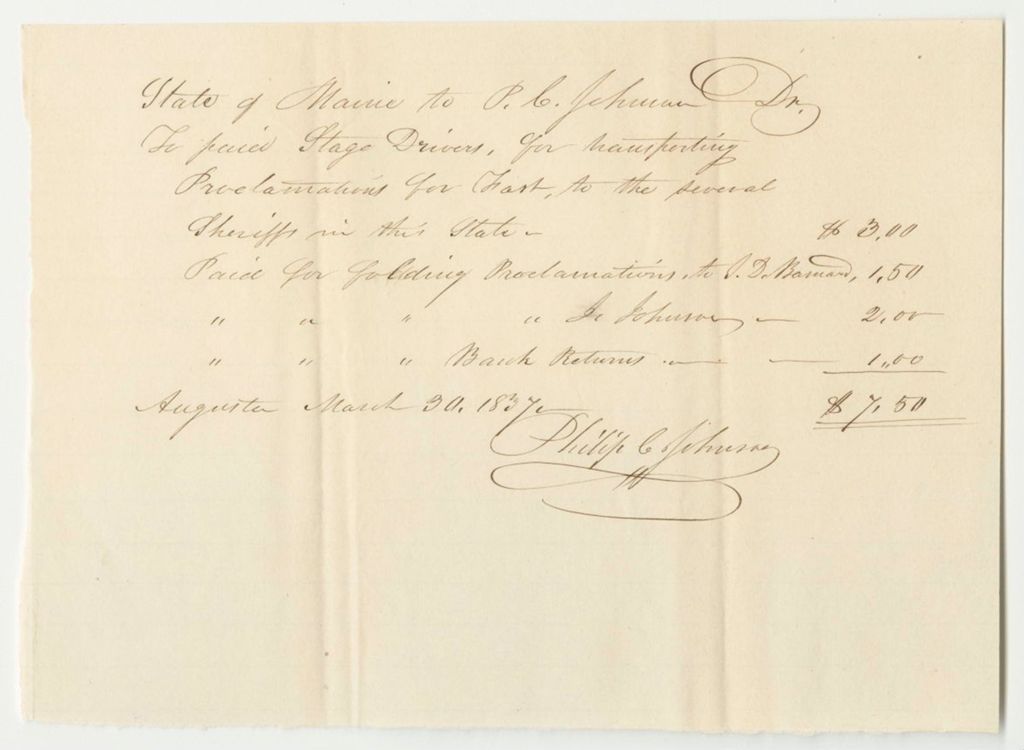 State of Maine to P. C. Johnson Dr.
To paid Stage Drivers, for transporting
Proclamations for Fast, to the several
Sheriffs in this State - $ 3.00
Paid for folding Proclamations, to J. D. Barnard, 1,50
" " " " Johnson - 2.00
" " " Bank Returns - - 1,00
Augusta March 30. 1837. $ 7,50
Philip C Johnson